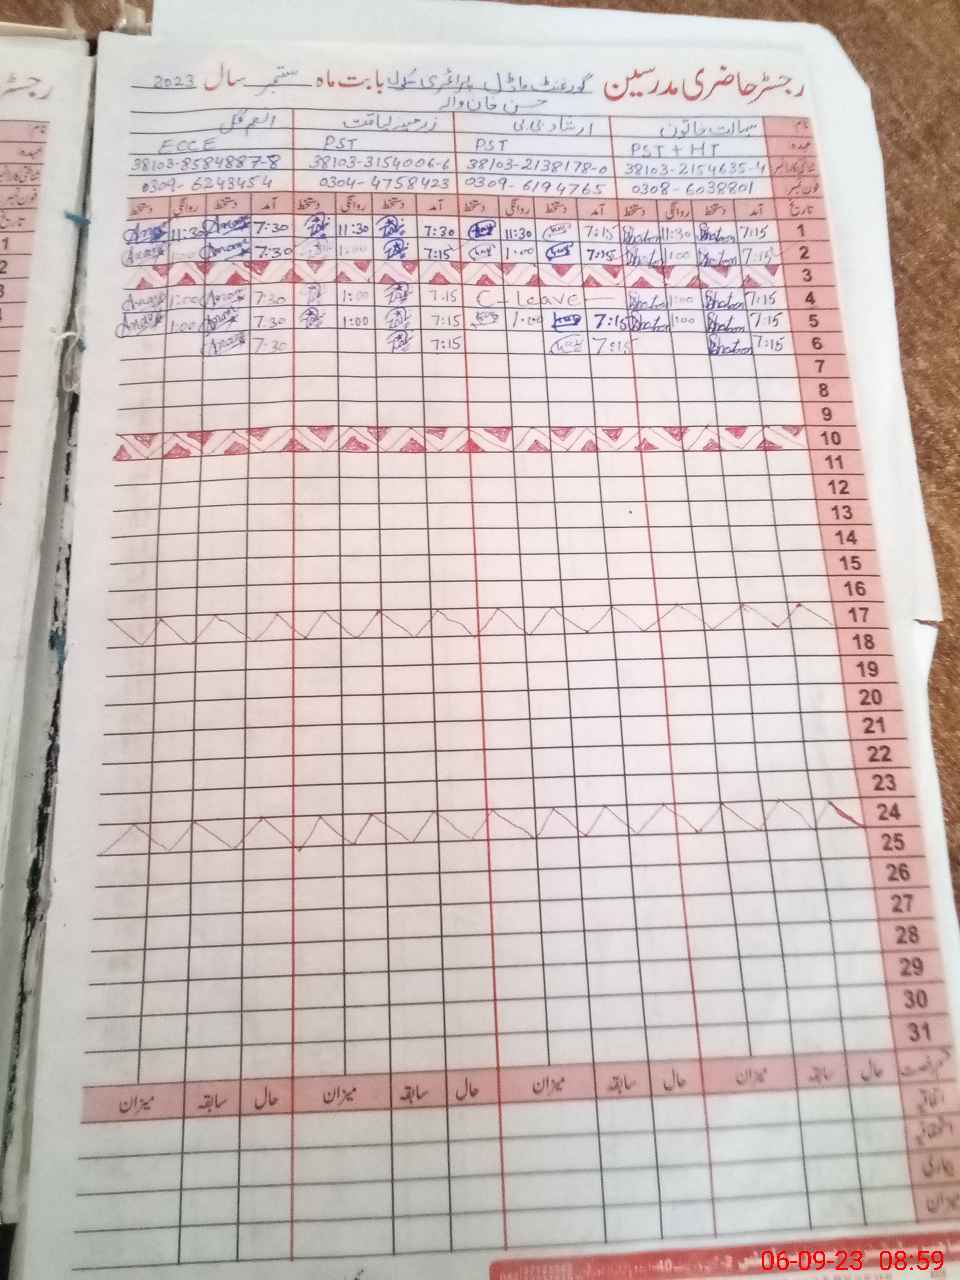 رجسٹر حاضری مدرسین گورنمنٹ ماڈل پرائمری سکول بابت ماہ ستمبر سال 2023
حسن خان والہ
نام سہالت خاتون ارشاد بی بی زرمینہ لیاقت انعم گل
عہدہ PST + HT PST PST ECCE
38103-2154635-4 38103-2138178-0 38103-3154006-6 38103-8584887-8
فون نمبر 0308-6038801 0309-6194765 0304-4758423 0309-6243454
تاریخ آمد دستخط روانگی دستخط آمد دستخط روانگی دستخط آمد دستخط روانگی دستخط آمد دستخط روانگی دستخط
1 7:15 Bhatoon 11:30 Bhatoon 7:15 11:30 7:30 11:30 7:30 Anam 11:30 Anam
2 7:15 Bhatoon 1:00 Bhatoon 7:15 1:00 7:15 1:00 7:30 Anam 1:00 Anam
3
4 7:15 Bhatoon 1:00 Bhatoon C-leave 7:15 1:00 7:30 Anam 1:00 Anam
5 7:15 Bhatoon 1:00 Bhatoon 7:15 1:00 7:15 1:00 7:30 Anam 1:00 Anam
6 7:15 Bhatoon 7:15 7:15 7:30 Anam
7
8
9
10
11
12
13
14
15
16
17
18
19
20
21
22
23
24
25
26
27
28
29
30
31
قسم رخصت حال سابقہ میزان حال سابقہ میزان حال سابقہ میزان حال سابقہ میزان
اتفاقیہ
استحقاقیہ
بیماری
میزان
06-09-23 08:59